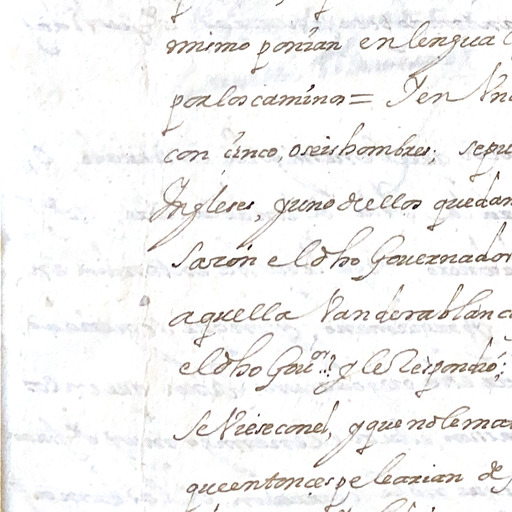 mimo ponian en lengua
por los caminos = Y en Vn
con cinco, o seis hombres; se pu
Ingleses, y uno de ellos quedan
Sazon el dho Gouernador
aquella Vandera blanc
el dho Gouor. y le Respondió;
se Viese con el, y que no le ma
que entonçes pelearian de